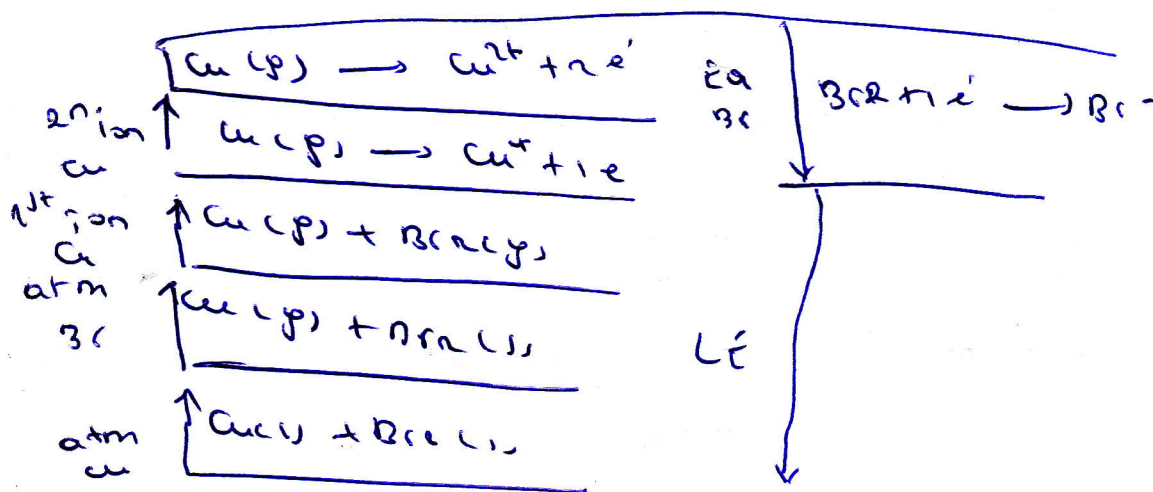 Cu (g) → Cu²⁺ + 2 é
2ⁿ ion
Cu
Cu (g) → Cu⁺ + 1 e
1st ion
Cu
Cu (g) + Br2 (g)
atm
Br
Cu (g) + Br2 (s)
atm
Cu
Cu(s) + Br2 (s)
EA
Br
Br2 + 1 é → Br -
LE